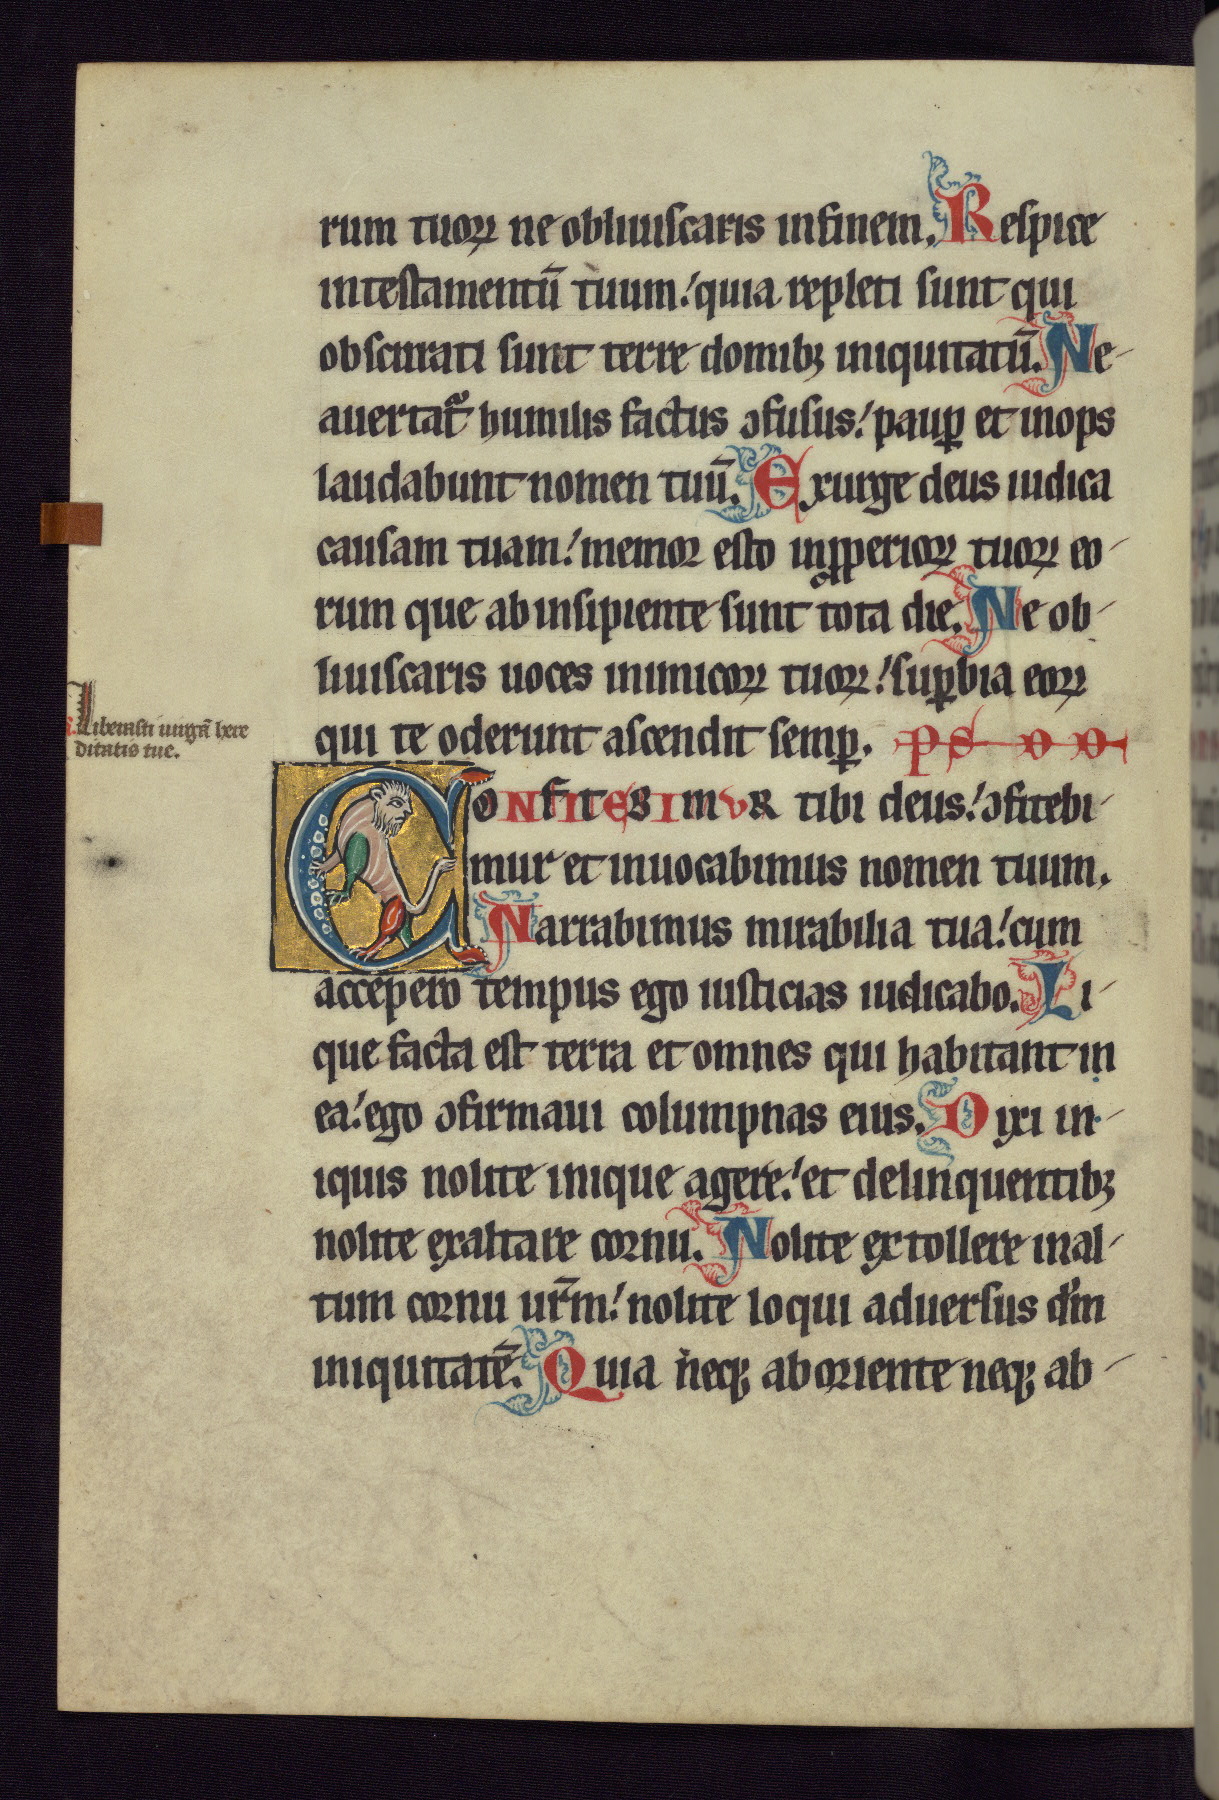 rum tuoꝝ ne obliuiscaris in finem. Respice
in testamentū tuum: quia repleti sunt qui
obscurati sunt terre domibꝫ iniquitatū. Ne
auertat᷑ humilis factus ↄfusus: paup̱ et inops
laudabunt nomen tuū. Exurge deus iudica
causam tuam: memor esto inꝓperioꝝ tuoꝝ eo-
rum que ab insipiente sunt tota die. Ne ob-
liuiscaris uoces inimicoꝝ tuoꝝ: suꝑbia eoꝝ
qui te oderunt ascendit semꝑ. PS
Liberasti uirgā here
ditatis tue.
CONFITEBIMVR tibi deus: ↄfitebi-
mur et inuocabimus nomen tuum.
Narrabimus mirabilia tua: cum
accepero tempus ego iusticias iudicabo. Li-
que facta est terra et omnes qui habitant in
ea: ego ↄfirmaui columpnas eius. Dixi in-
iquis nolite inique agere: et delinquentibꝫ
nolite exaltare cornu. Nolite extollere in al-
tum cornu ur̄m: nolite loqui aduersus dm̄
iniquitatē. Quia neqꝫ ab oriente neqꝫ ab-